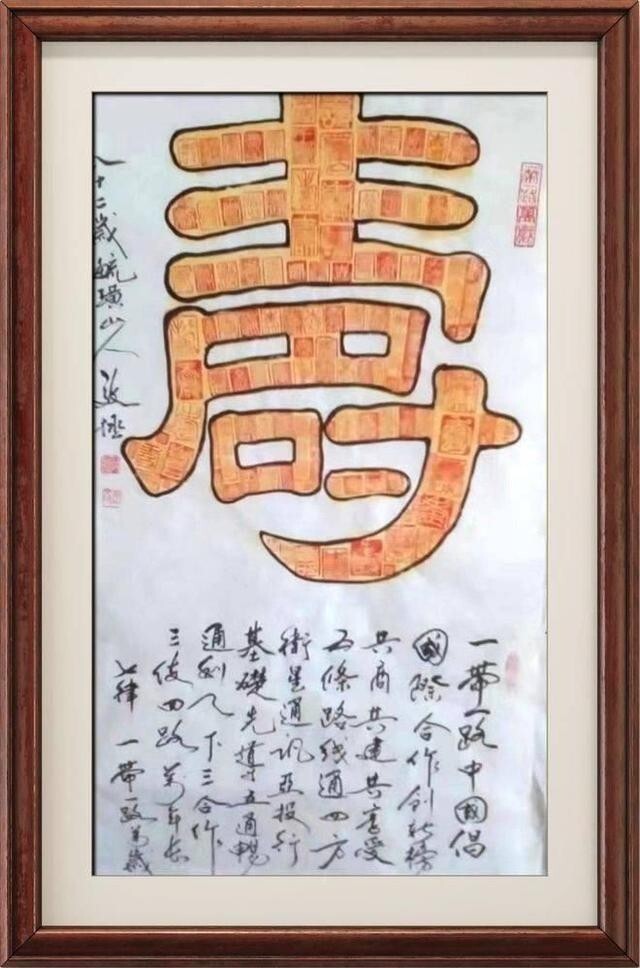 壽
一帶一路中國倡
國際合作创新榜
共商共建共享受
五條路线通四方
衛星通讯亞投行
基礎先導五通暢
通下三合作
三四路萬年长
七律 一帶一路萬歲
八十二歲毓璜山人